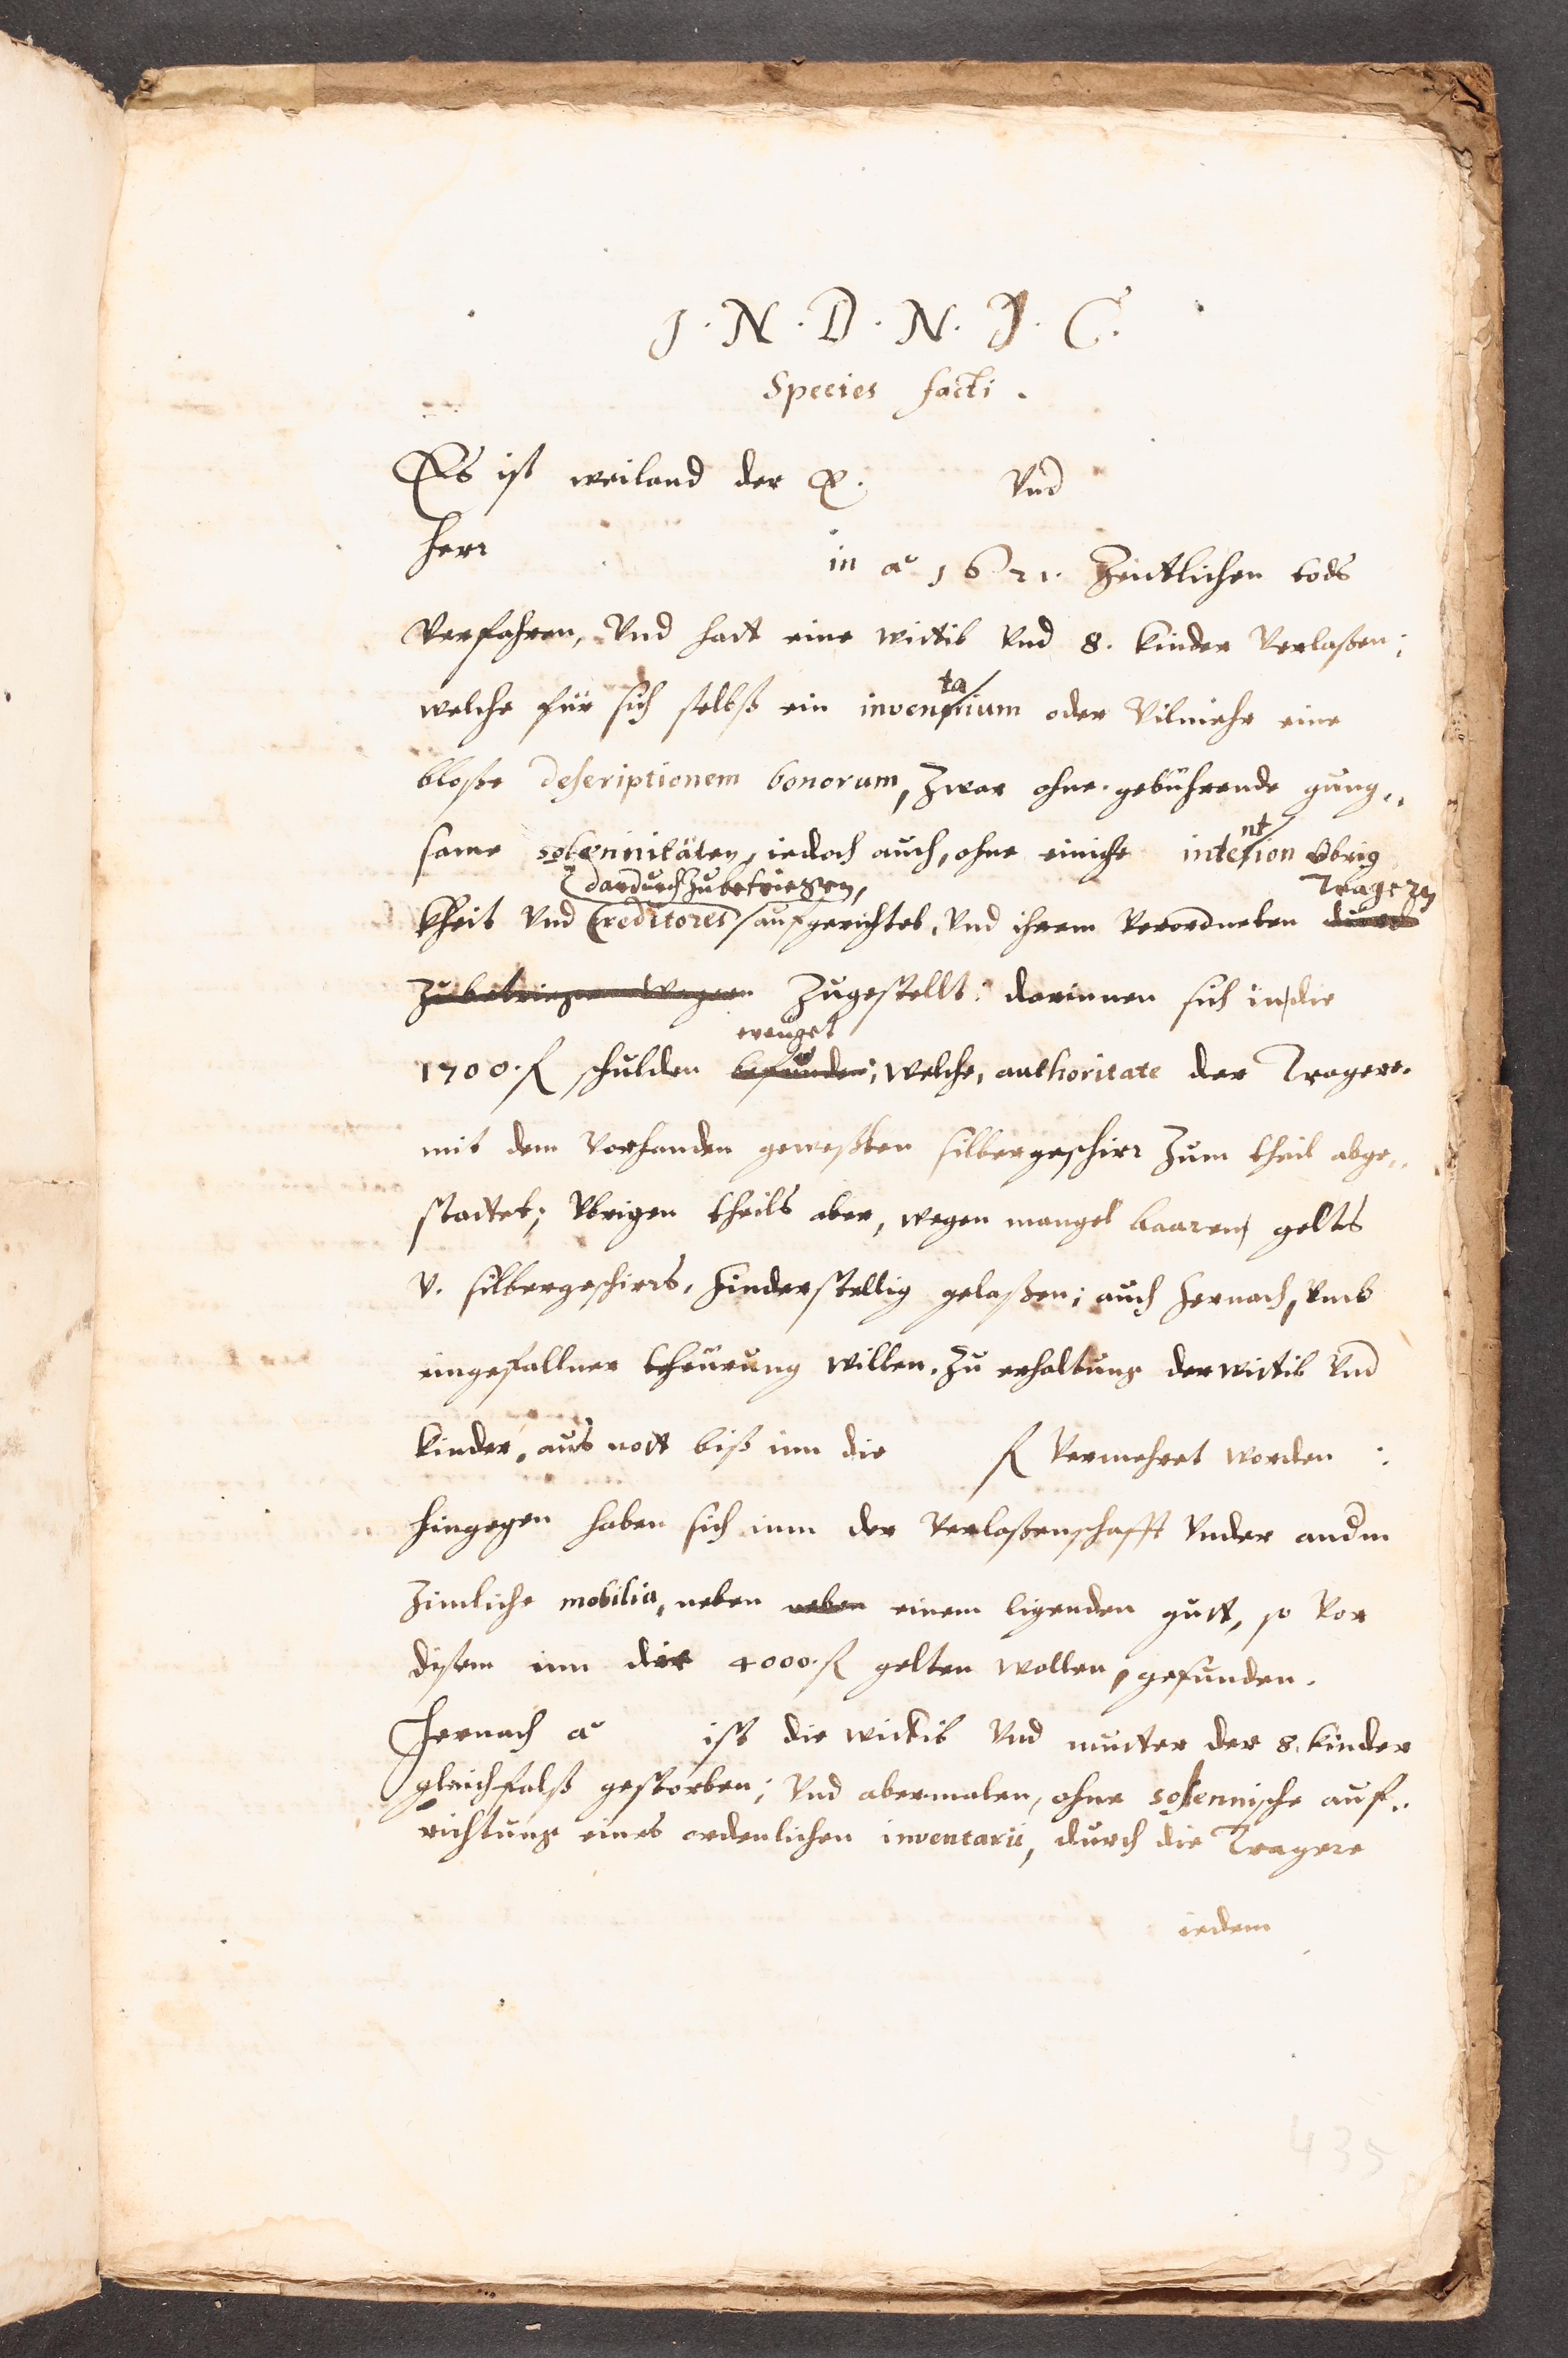 J. N. D. N. J. C.
Species facti.
Es ist weiland der E. Vnd
Herr in aͦ 1621. Zeittlichen tods
Verfahren, Vnd hatt eine wittib Vnd 8. kinder Verlaßen;
ta
welche für sich selbst ein inventarium oder Vilmehr eine
bloße descriptionem bonorum, Zwar ohne gebührende gnug„
nt
same solennitäten, iedoch auch, ohne einiche intention Obrig
dardurch Zubetriegen, Tragern
kheit Vnd Creditores aufgerichtet, Vnd ihrem Verordneten durch
Zubetriegen Wegern Zugestellt: darinnen sich in die
ereuget
1700. fl schulden befunden; welche, authoritate der Tragere.
mit dem Vorhanden geweßten silbergeschirr Zum theil abge„
stattet; Vbrigen theils aber, wegen mangel baaren gelts
V. silbergeschirrs, hinderstellig gelaßen; auch hernach, Vmb
eingefallner theürung willen, Zu erhaltung der wittib Vnd
kinder, aus nott biß inn die fl Vermehret worden:
hingegen haben sich inn der Verlaßenschafft Vnder andern
Zimliche mobilia, neben neben einem ligenden gutt, so Vor
disem inn die 4000. fl gelten wollen, gefunden.
Hernach aͦ ist die wittib Vnd mutter der 8. kinder
gleichfalß gestorben; Vnd abermalen, ohne solennische auf„
richtung eines ordenlichen inventarii, durch die Tragere
iedem
435